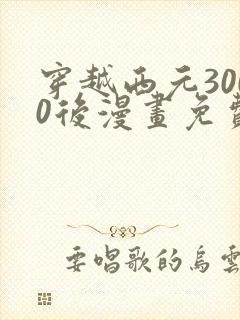 穿越西元300
0後漫畫免費
要唱歌的烏雲